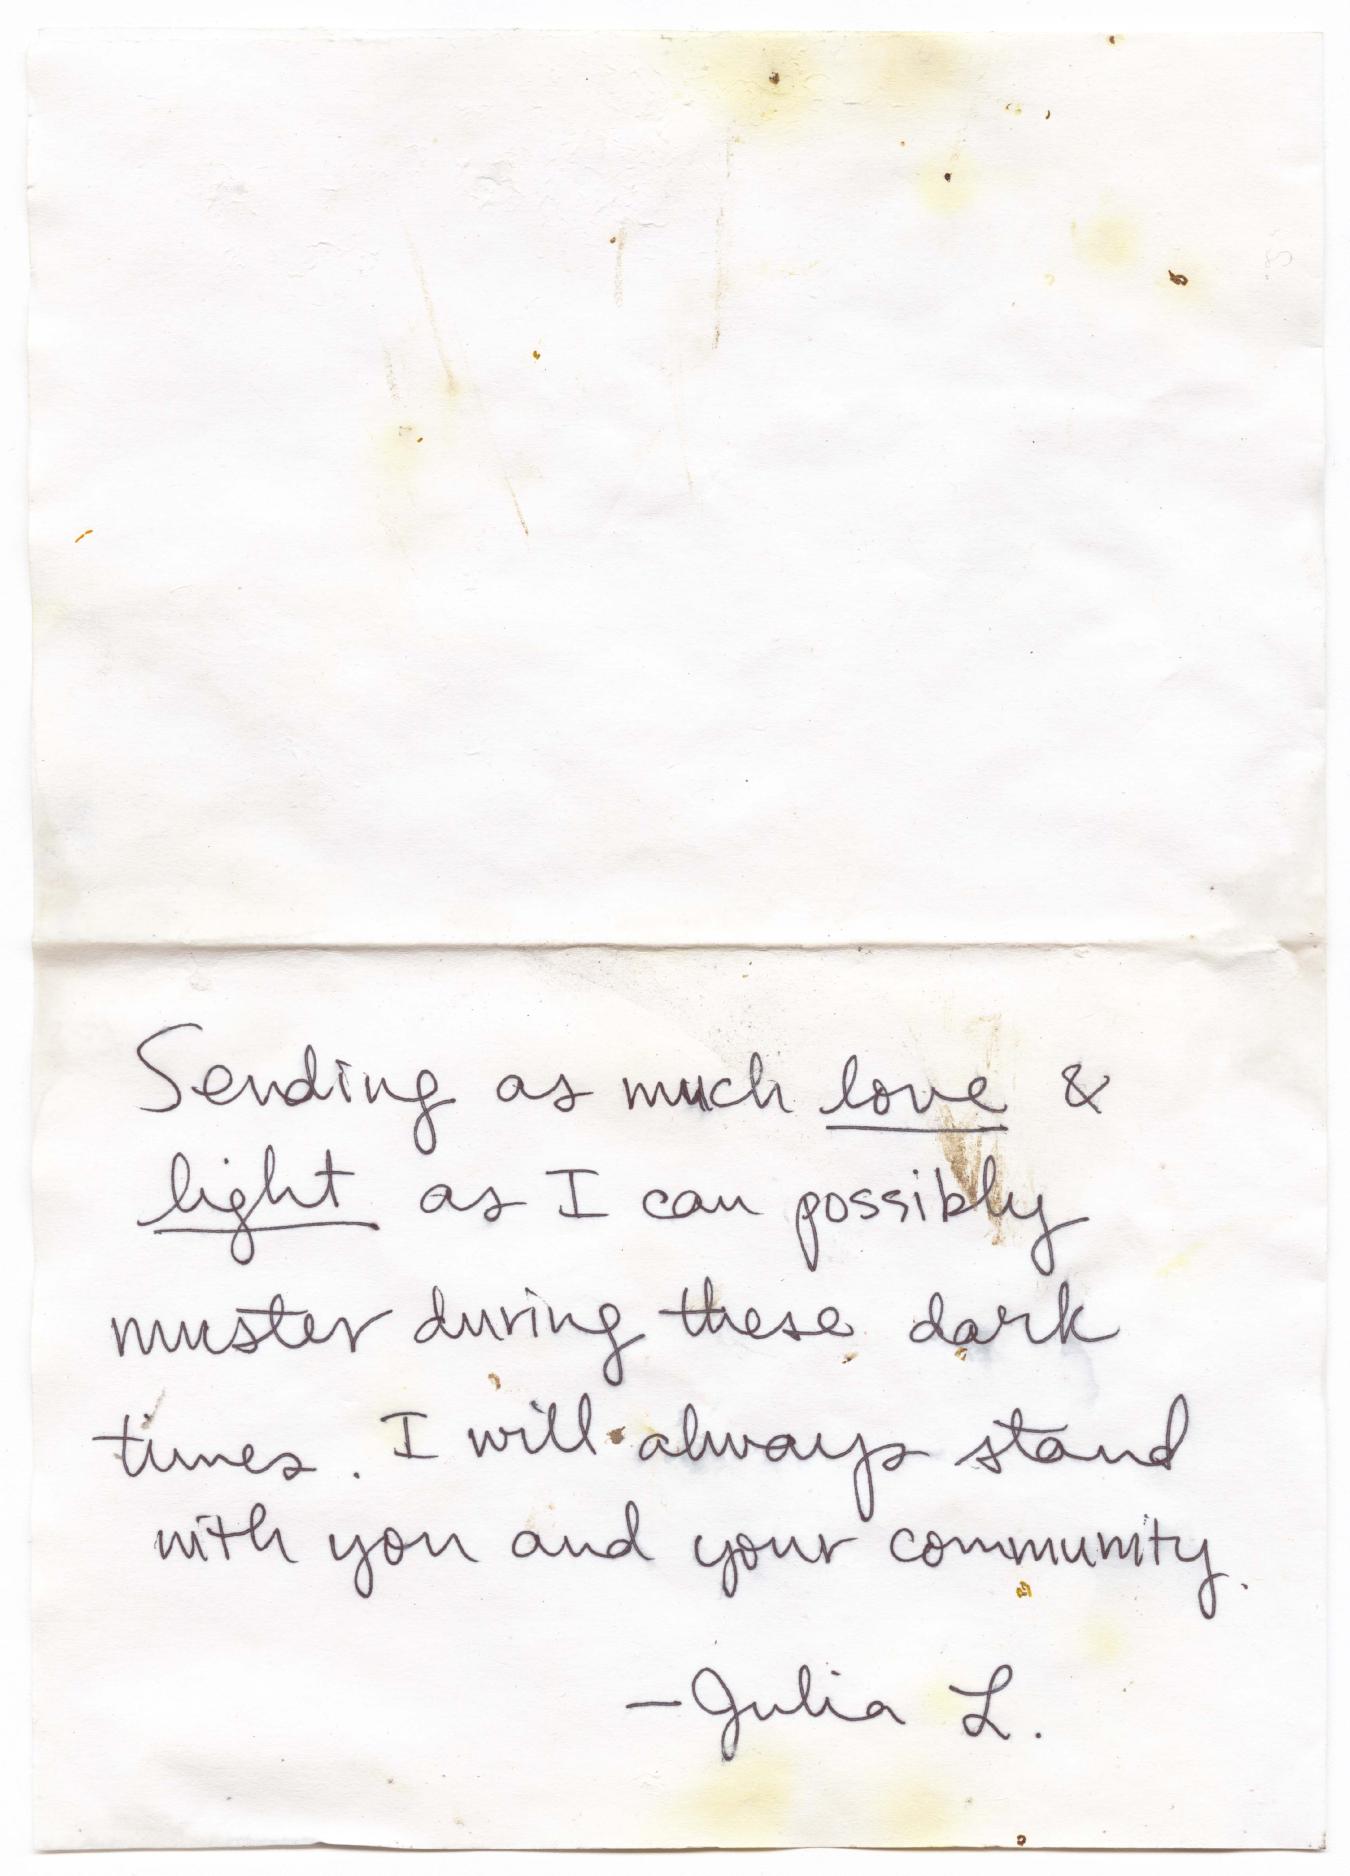 Sending as much love &
light as I can possibly
muster during these dark
times. I will always stand
with you and your community.
-Julia L.